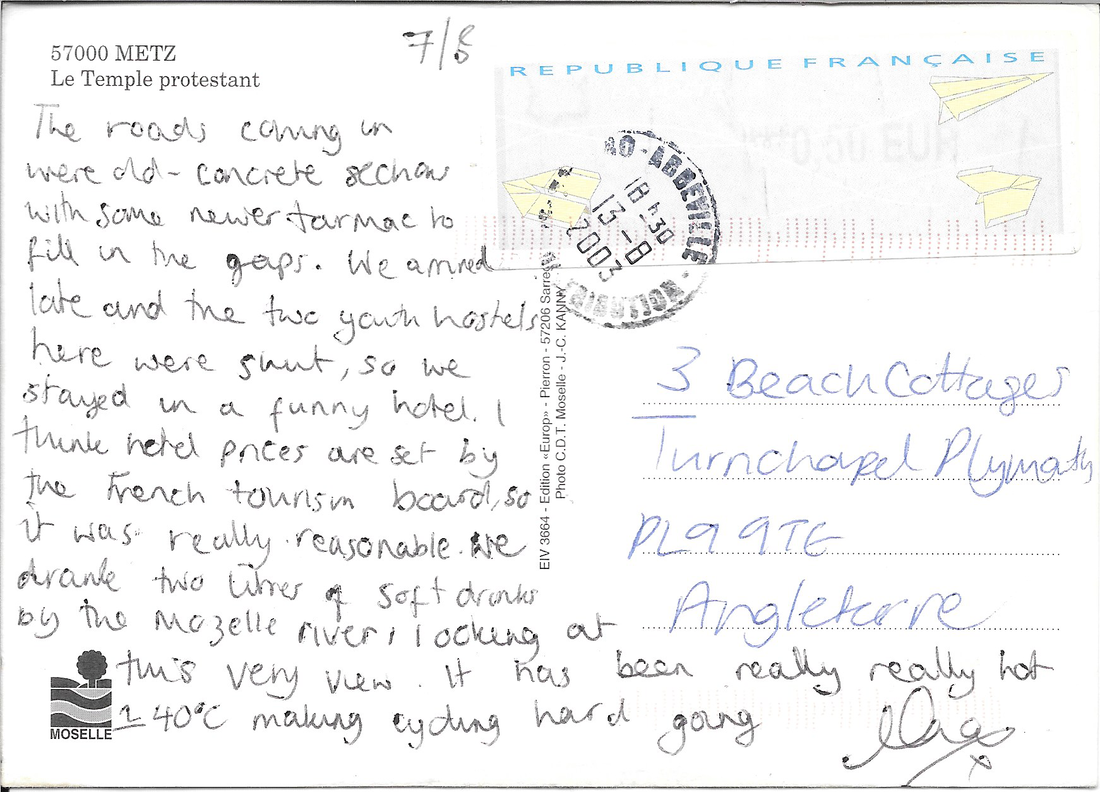 57000 METZ
Le Temple protestant
7/8
REPUBLIQUE FRANÇAISE
0,50 EUR
80-ABBEVILLE
18h30
13-8
2003
The roads coming in
were old - concrete sections
with some newer tarmac to
fill in the gaps. We arrived
late and the two youth hostels
here were shut, so we
stayed in a funny hotel. I
think hotel prices are set by
the French tourism board, so
it was really reasonable. We
drank two litres of soft drinks
by the Mozelle river, looking at
this very view. It has been really really hot
≥ 40°C making cycling hard going
x
EIV 3664 - Edition «Europ» - Pierron - 57206 Sarre
Photo C.D.T. Moselle - J.-C. KANNY
3 Beach Cottages
Turnchapel Plymouth
PL9 9TE
Angleterre
MOSELLE